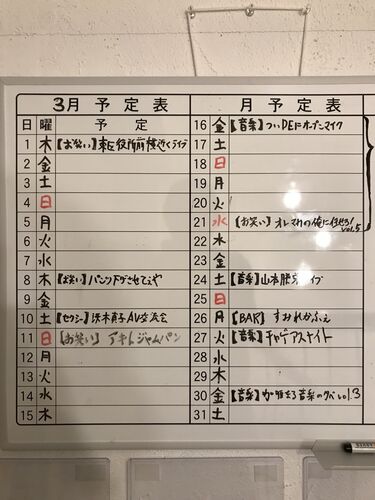 3月 予定表
日 曜 予定
1 木 【お笑い】東区役所前接近ライブ
2 金
3 土
4 日
5 月
6 火
7 水
8 木 【お笑い】パンツ下げさせてえや
9 金
10 土 【セクシー】渋木真子AV交流会
11 日 【お笑い】アキトジャムパン
12 月
13 火
14 水
15 木
月 予定表
16 金 【音楽】ついDEにオープンマイク
17 土
18 日
19 月
20 火
21 水 【お笑い】オレすわの俺に任せろ! vol.5
22 木
23 金
24 土 【音楽】山本勝ライブ
25 日
26 月 【BAR】すおれかふぇ
27 火 【音楽】チャゲアスナイト
28 水
29 木
30 金 【音楽】が唯する音楽の夕べ vol.3
31 土